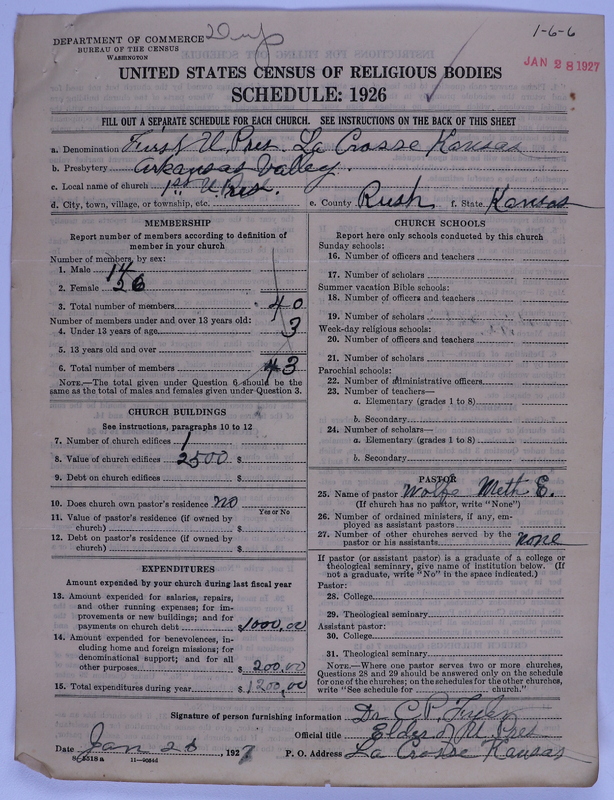 DEPARTMENT OF COMMERCE
BUREAU OF THE CENSUS
WASHINGTON
1-6-6
JAN 28 1927
UNITED STATES CENSUS OF RELIGIOUS BODIES
SCHEDULE: 1926
FILL OUT A SEPARATE SCHEDULE FOR EACH CHURCH. SEE INSTRUCTIONS ON THE BACK OF THIS SHEET
a. Denomination First U. Pres. La Crosse Kansas
b. Presbytery Arkansas Valley.
c. Local name of church 1st U. Pres.
d. City, town, village, or township, etc. e. County Rush f. State Kansas
MEMBERSHIP
Report number of members according to definition of
member in your church
Number of members, by sex:
1. Male 14
2. Female 26
3. Total number of members 40
Number of members under and over 13 years old:
4. Under 13 years of age 3
5. 13 years old and over
6. Total number of members 43
NOTE.—The total given under Question 6 should be the
same as the total of males and females given under Question 3.
CHURCH BUILDINGS
See instructions, paragraphs 10 to 12
7. Number of church edifices 1
8. Value of church edifices 2500 $
9. Debt on church edifices $
10. Does church own pastor's residence no
Yes or No
11. Value of pastor's residence (if owned by
church) $
12. Debt on pastor's residence (if owned by
church) $
EXPENDITURES
Amount expended by your church during last fiscal year
13. Amount expended for salaries, repairs,
and other running expenses; for im-
provements or new buildings; and for
payments on church debt $1000.00
14. Amount expended for benevolences, in-
cluding home and foreign missions; for
denominational support; and for all
other purposes $200.00
15. Total expenditures during year $1200.00
CHURCH SCHOOLS
Report here only schools conducted by this church
Sunday schools:
16. Number of officers and teachers
17. Number of scholars
Summer vacation Bible schools:
18. Number of officers and teachers
19. Number of scholars
Week-day religious schools:
20. Number of officers and teachers
21. Number of scholars
Parochial schools:
22. Number of administrative officers
23. Number of teachers—
a. Elementary (grades 1 to 8)
b. Secondary
24. Number of scholars—
a. Elementary (grades 1 to 8)
b. Secondary
PASTOR
25. Name of pastor Wolfe Meth E.
(If church has no pastor, write "None")
26. Number of ordained ministers, if any, em-
ployed as assistant pastors
27. Number of other churches served by the
pastor or his assistants none
If pastor (or assistant pastor) is a graduate of a college or
theological seminary, give name of institution below. (If
not a graduate, write "No" in the space indicated.)
Pastor:
28. College
29. Theological seminary
Assistant pastor:
30. College
31. Theological seminary
NOTE.—Where one pastor serves two or more churches,
Questions 28 and 29 should be answered only on the schedule
for one of the churches; on the schedules for the other churches,
write "See schedule for church."
Signature of person furnishing information Dr C. P.
Official title Elder of U. Pres
Date Jan 26, 1927 P. O. Address La Crosse Kansas
8-5518 a 11—9054d